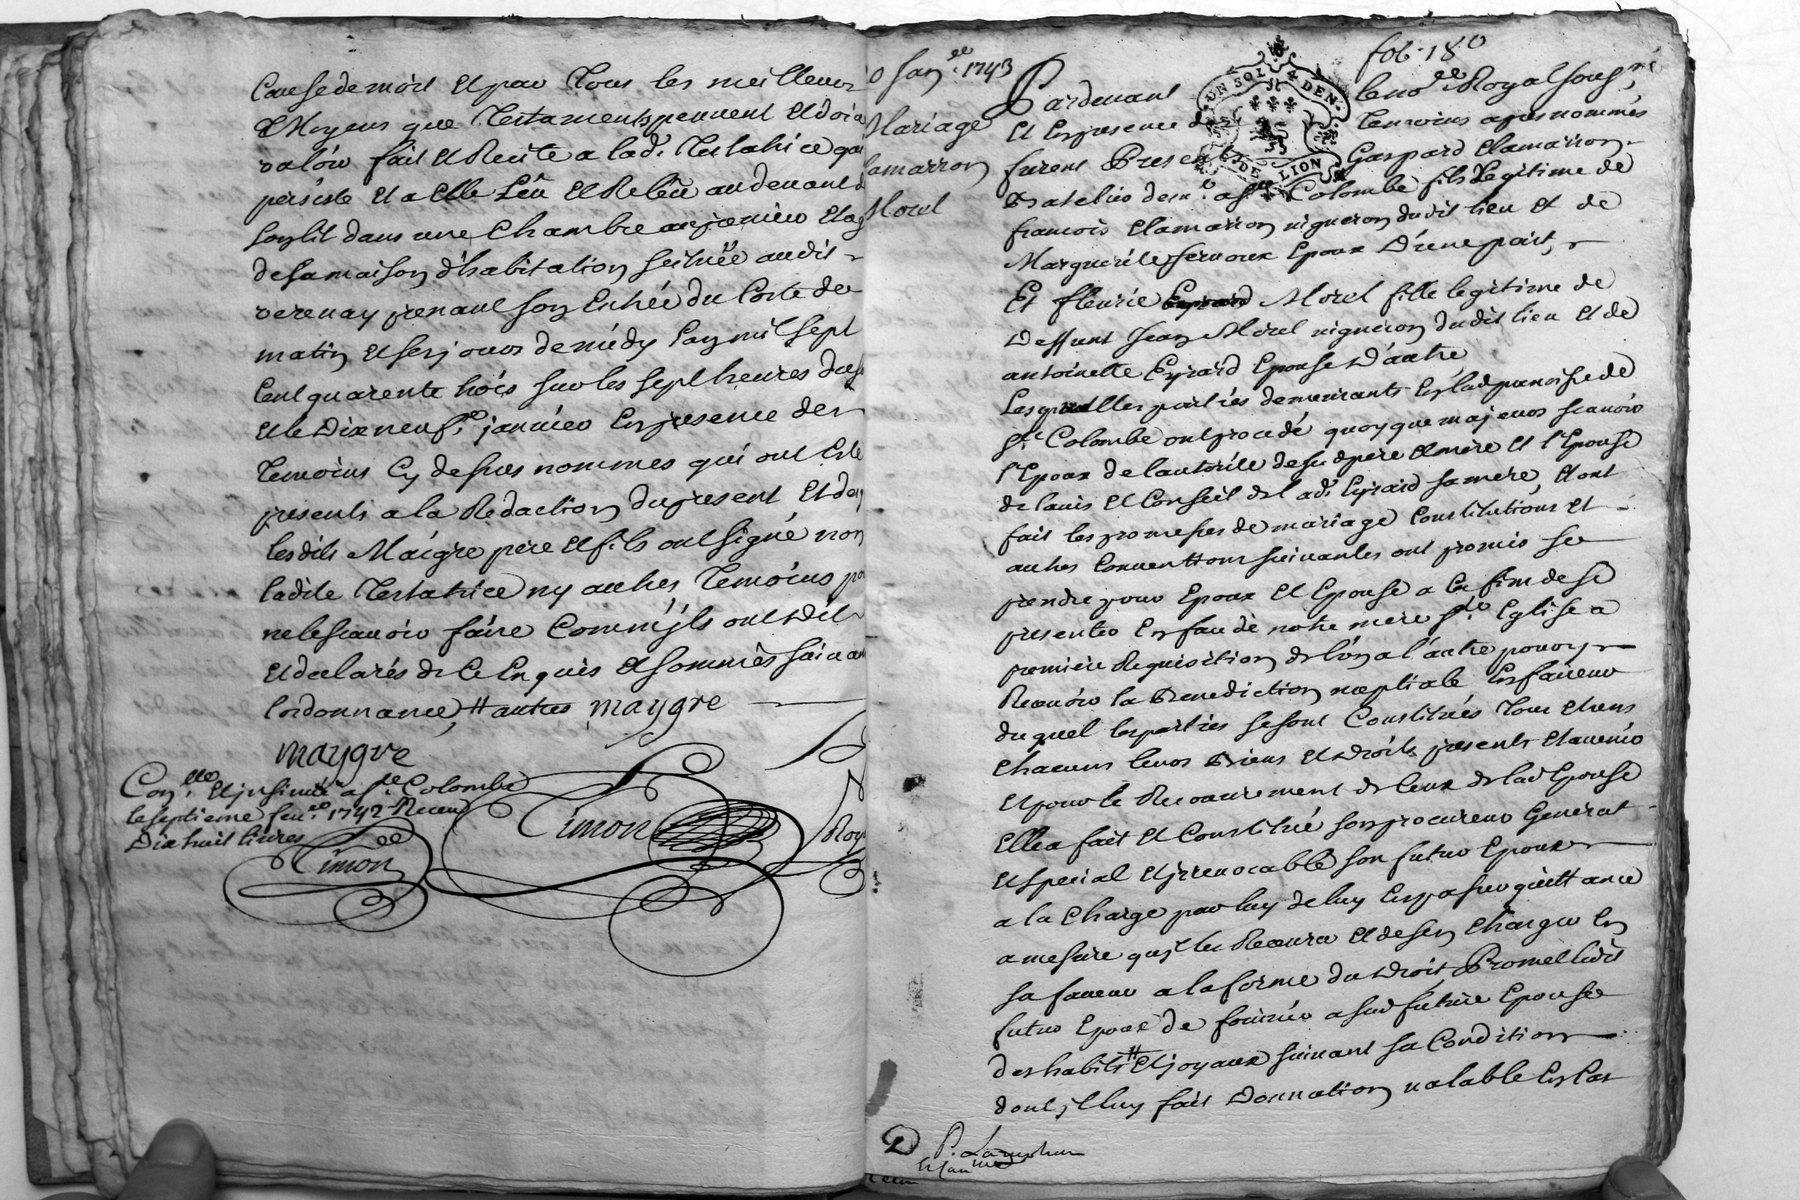 Cause de mort et par tous les meilleurs
Moyens que Testaments peuvent et doiv
valoir fait et Recité a lad. Testatrice qui
persiste et a elle Leu et Releu au devant de
son lit dans une Chambre au premier etag
de sa maison d'habitation scituée audit
verenay prenant son Entrée du Costé de
matin et ses jours de midy L'an mil sept
Cent quarente trois sur les sept heures du
et le Dixneufe. janvier En presence des
Temoins Cy dessus nommés qui ont Esté
presents a la Redaction du present Et don
lesdits Maigre pere et fils ont signé non
ladite Testatrice ny autres Temoins po
ne le scavoir faire Comm'jls ont dit
et declarés de Ce Enquis et sommés suivan
l'ordonnance, # autres maygre
maygre
Con.lé et jnsinué a Ste. Colombe
le septieme feu.er 1742 Receu
Dix huit livres
Timon
Timon
Roy
fol. 180
Janee. 1743
Mariage
lamarron
Morel
UN SOL 4 DEN.
G. DE LION
Pardevant le no.re Royal soussné
Et En presence des Temoins apres nommés
furent Presents Gaspard Clamaron
Batelier dem.t a Ste Colombe fils Legitime de
francois Clamaron vigneron dudit lieu et de
Marguerite servoux Epoux D'une part,
Et fleurie Morel fille legitime de
Deffunt Jean Morel vigneron dudit lieu et de
antoinette Eyraid Epouse D'autre
Lesquelles parties demeurants En lad. parroisse de
Ste. Colombe ont procedé quoyque majeurs scavoir
l'Epoux de l'autorité desd. pere et mere et l'Epouse
de l'avis et Conseil de lad. Eyraid sa mere, et ont
fait les promesses de mariage Constitutions et
autres Conventions suivantes ont promis se
prendre pour Epoux et Epouse a Ces fins de se
presenter En face de notre mere Ste. Eglise a
premiere Requisition de l'un a l'autre pour y
Recevoir la Benediction nuptiale En faveur
duquel les parties se sont Constitués tous et uns
chacuns leurs Biens et droits presents et avenir
et pour le Recouvrement de Ceux de lad. Epouse
Elle a fait et Constitué son procureur General
et special et jrrevocable son futur Epoux
a la Charge par luy de luy En passer quittance
a mesure qu'jl les Recevra et de s'en charger En
sa faveur a la forme du droit, Promet ledit
futur Epoux de fournir a sad. future Epouse
des habits # et joyaux suivant sa Condition
dont jl luy fait Donnation valable En Cas